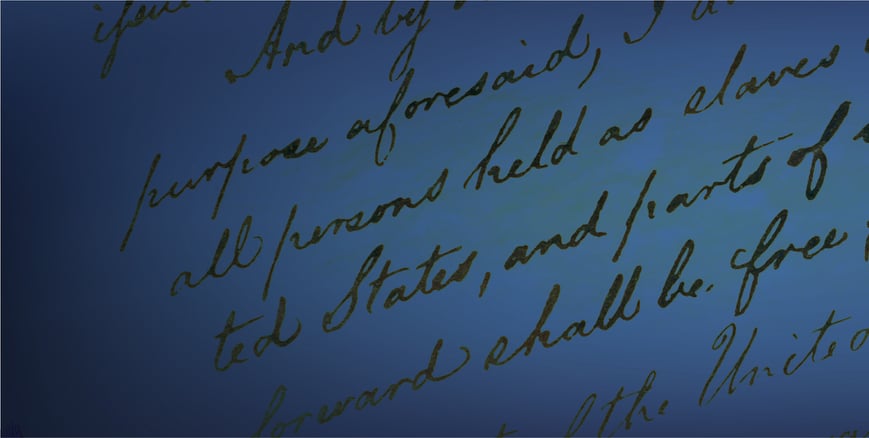 And by
purpose aforesaid, I
all persons held as slaves
ted States, and parts of
forward shall be free
the United